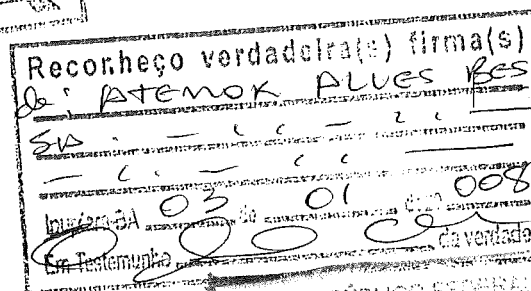 Reconheço verdadeira(s) firma(s)
de: ATENOR ALVES BES
SA. - " - "
- " - "
BA 03 de 01 de 2008
Em Testemunho da verdade